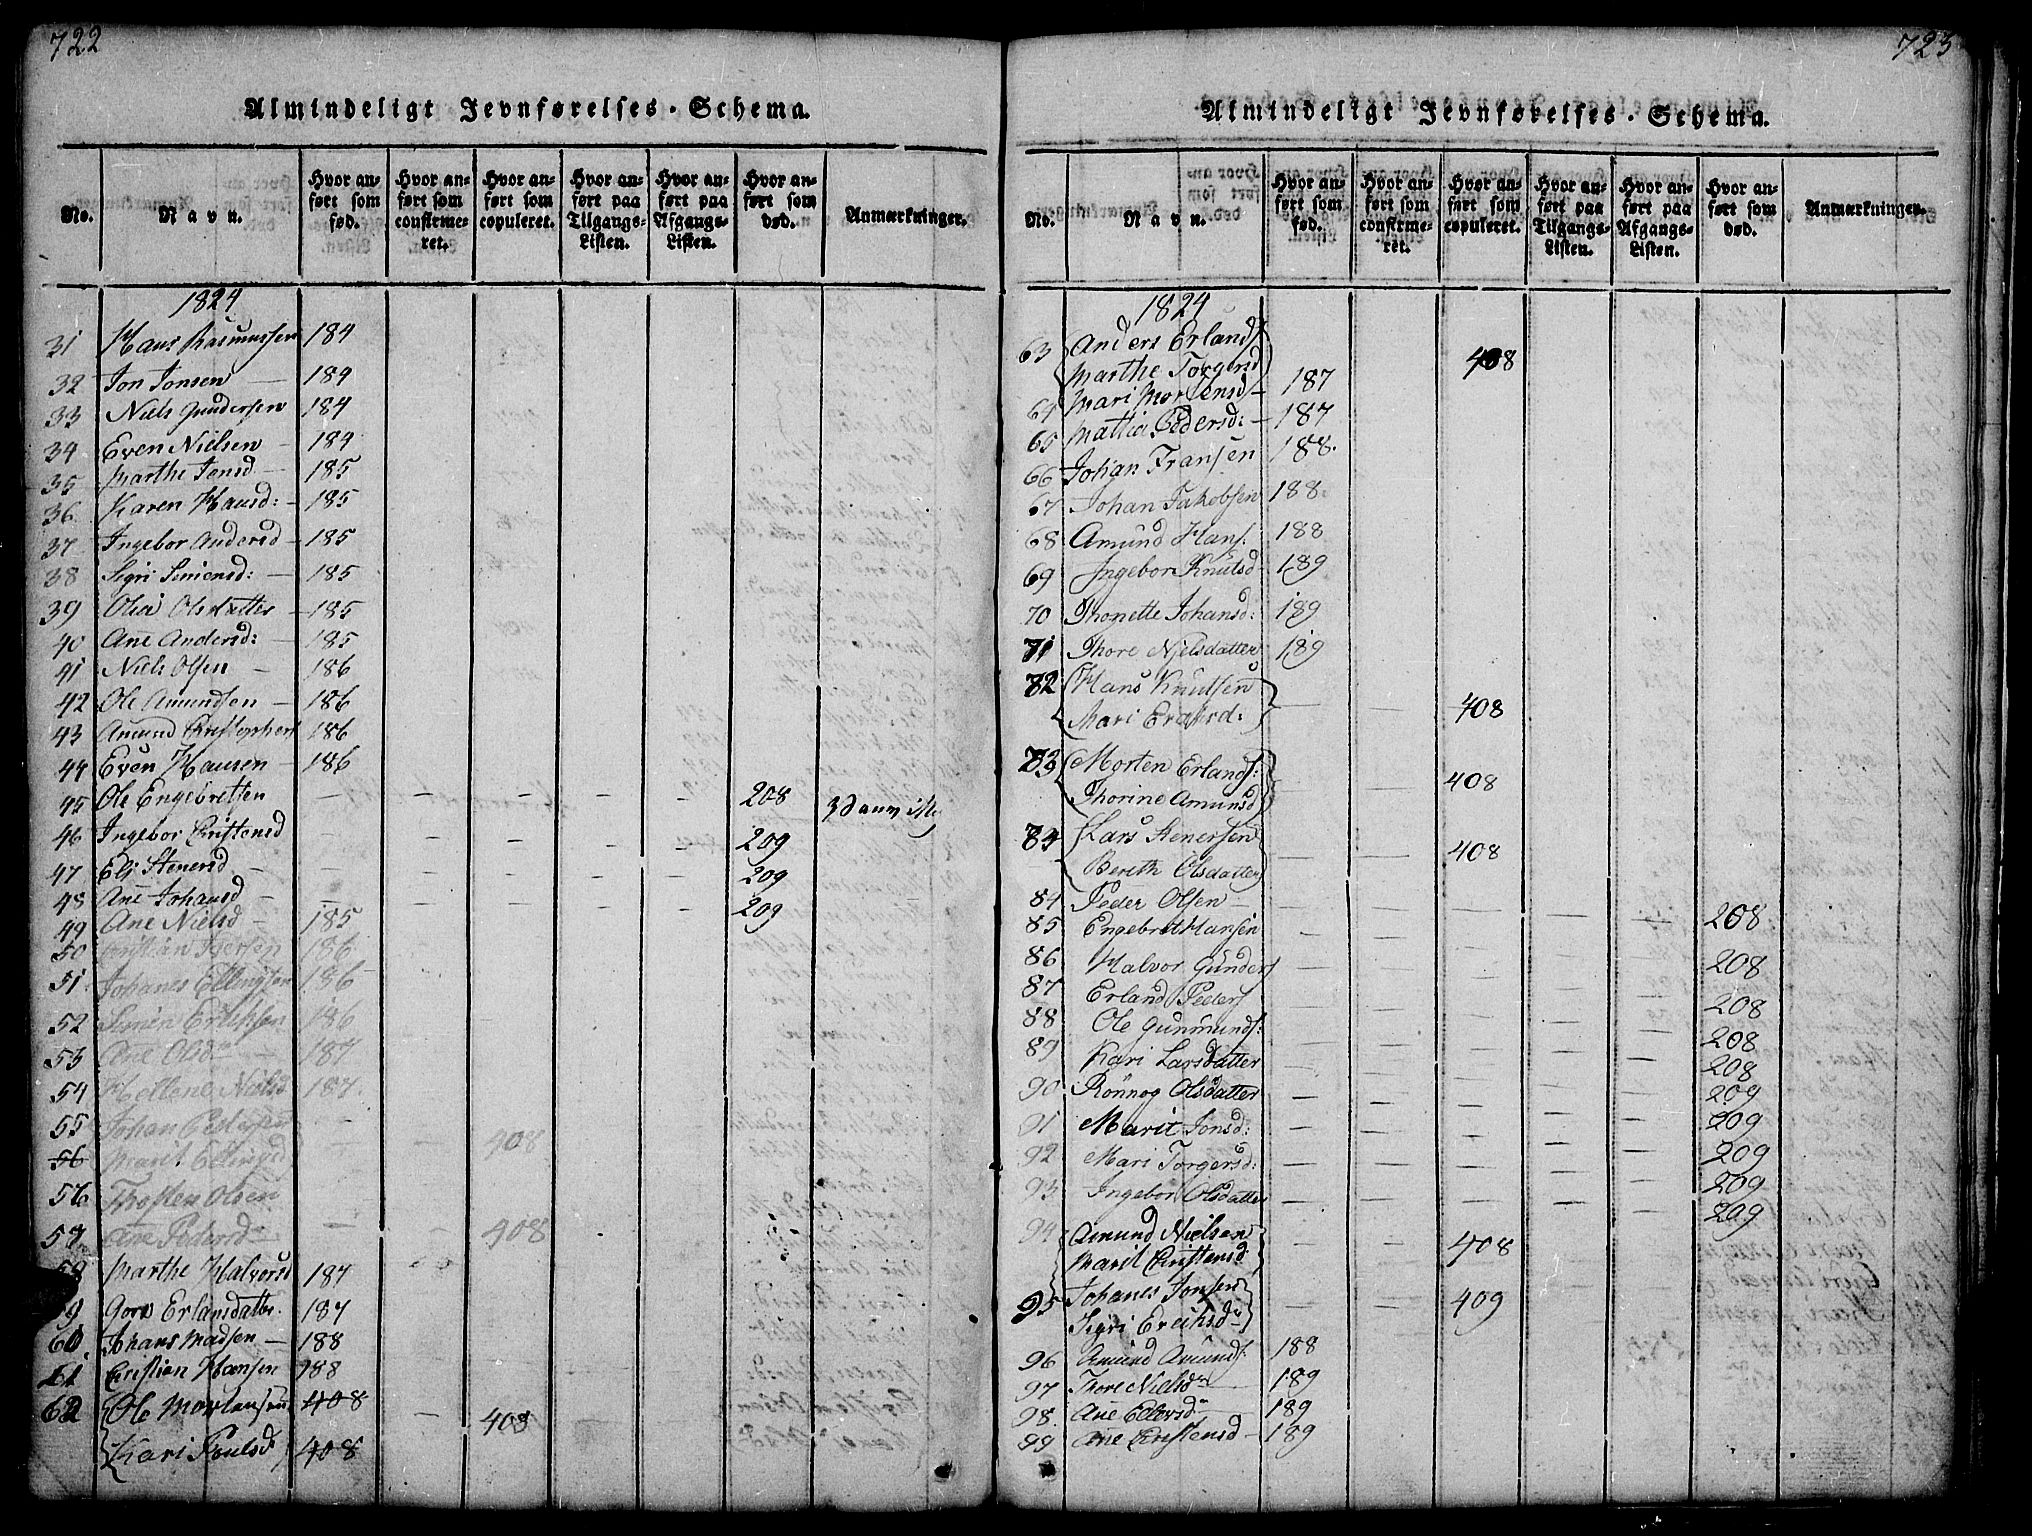 722
Almindeligt Jevnførelses-Schema.
No. Navn. Hvor anført som fød. Hvor anført som confirmeret. Hvor anført som copuleret. Hvor anført paa Tilgangs-Listen. Hvor anført paa Afgangs-Listen. Hvor anført som død. Anmærkninger.
1824
31 Hans Rasmussen 184
32 Jon Jonsen — 184
33 Niels Gundersen 184
34 Even Nielsen — 184
35 Marthe Jonsd — 185
36 Karen Hansd: — 185
37 Ingebor Andersd — 185
38 Sigri Simensd: — 185
39 Olia Olsdatter — 185
40 Ane Andersd: — 185
41 Niels Olsen — 186
42 Ole Amundsen — 186
43 Amund Christophers 186
44 Even Hansen — 186
45 Ole Engebretsen — — — — — 208
46 Ingebor Cristensd — — — — — 209
47 Eli Stenersd — — — — — — 209
48 Ane Johansd — — — — — — 209
49 Ane Nielsd — 185
50 Cristian Iversen 186
51 Johanes Ellingsen 186
52 Simen Eriksen 186
53 Ane Olsdr — 187
54 Hellene Nielsd 187
55 Johan Pedersen — 408
56 Marit Ellingsd
56 Thosten Olsen
57 Ane Pedersdr — 408
58 Marthe Halvorsd 187
59 Goro Erlansdatter. 187
60 Johans Madsen — 188
61 Cristien Hansen 188
62 Ole Mortensen 408 — 408
Kari Poulsd 408
723
Almindeligt Jevnførelses-Schema.
No. Navn. Hvor anført som fød. Hvor anført som confirmeret. Hvor anført som copuleret. Hvor anført paa Tilgangs-Listen. Hvor anført paa Afgangs-Listen. Hvor anført som død. Anmærkninger.
1824
63 Anders Erlands:
Marthe Torgersd 408
64 Mari Mortensd — 187
65 Mattia Pedersd: — 187
66 Johan Fransen 188.
67 Johan Jakobsen 188.
68 Amund Hans: 188
69 Ingebor Knutsd — 189
70 Thonette Johansd: 189
71 Thore Nielsdatter 189
72 Hans Knutsen — — 408
Mari
73 Morten Erlands:
Thorine Amunsd 408
74 Lars Stenersen — — 408
Bereth Olsdatter
84 Peder Olsen — — — — — — 208
85 Engebret Hansen — — — — — 208
86 Halvor Gunders — — — — — 208
87 Erland Peders — — — — — 208
88 Ole Gunmunds: — — — — — 208
89 Kari Larsdatter — — — — — 209
90 Rönnog Olsdatter — — — — — 209
91 Marit Jonsd: — — — — — 209
92 Mari Torgersd: — — — — — 209
93 Ingebor Olsdatter — — — — — 209
94 Amund Nielsen — — 408
Marit Cristensd
95 Johanes Jonsen — — 409
Sigri Ereiksdr
96 Amund Amunds: 188
97 Thore Nielsdr — 189
98. Ane Pedersdr — 189
99 Ane Cristensd — 189